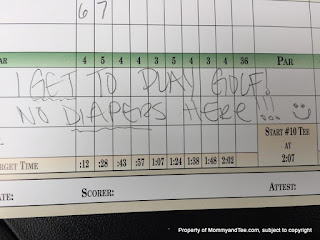 6 7
AR 4 5 4 3 5 4 3 4 4 36 PAR
I GET TO PLAY GOLF!
NO DIAPERS HERE!!! :)
START #10 TEE
AT
2:07
RGET TIME :12 :28 :43 :57 1:07 1:24 1:38 1:48 2:02
ATE: SCORER: ATTEST:
Property of MommyandTee.com, subject to copyright